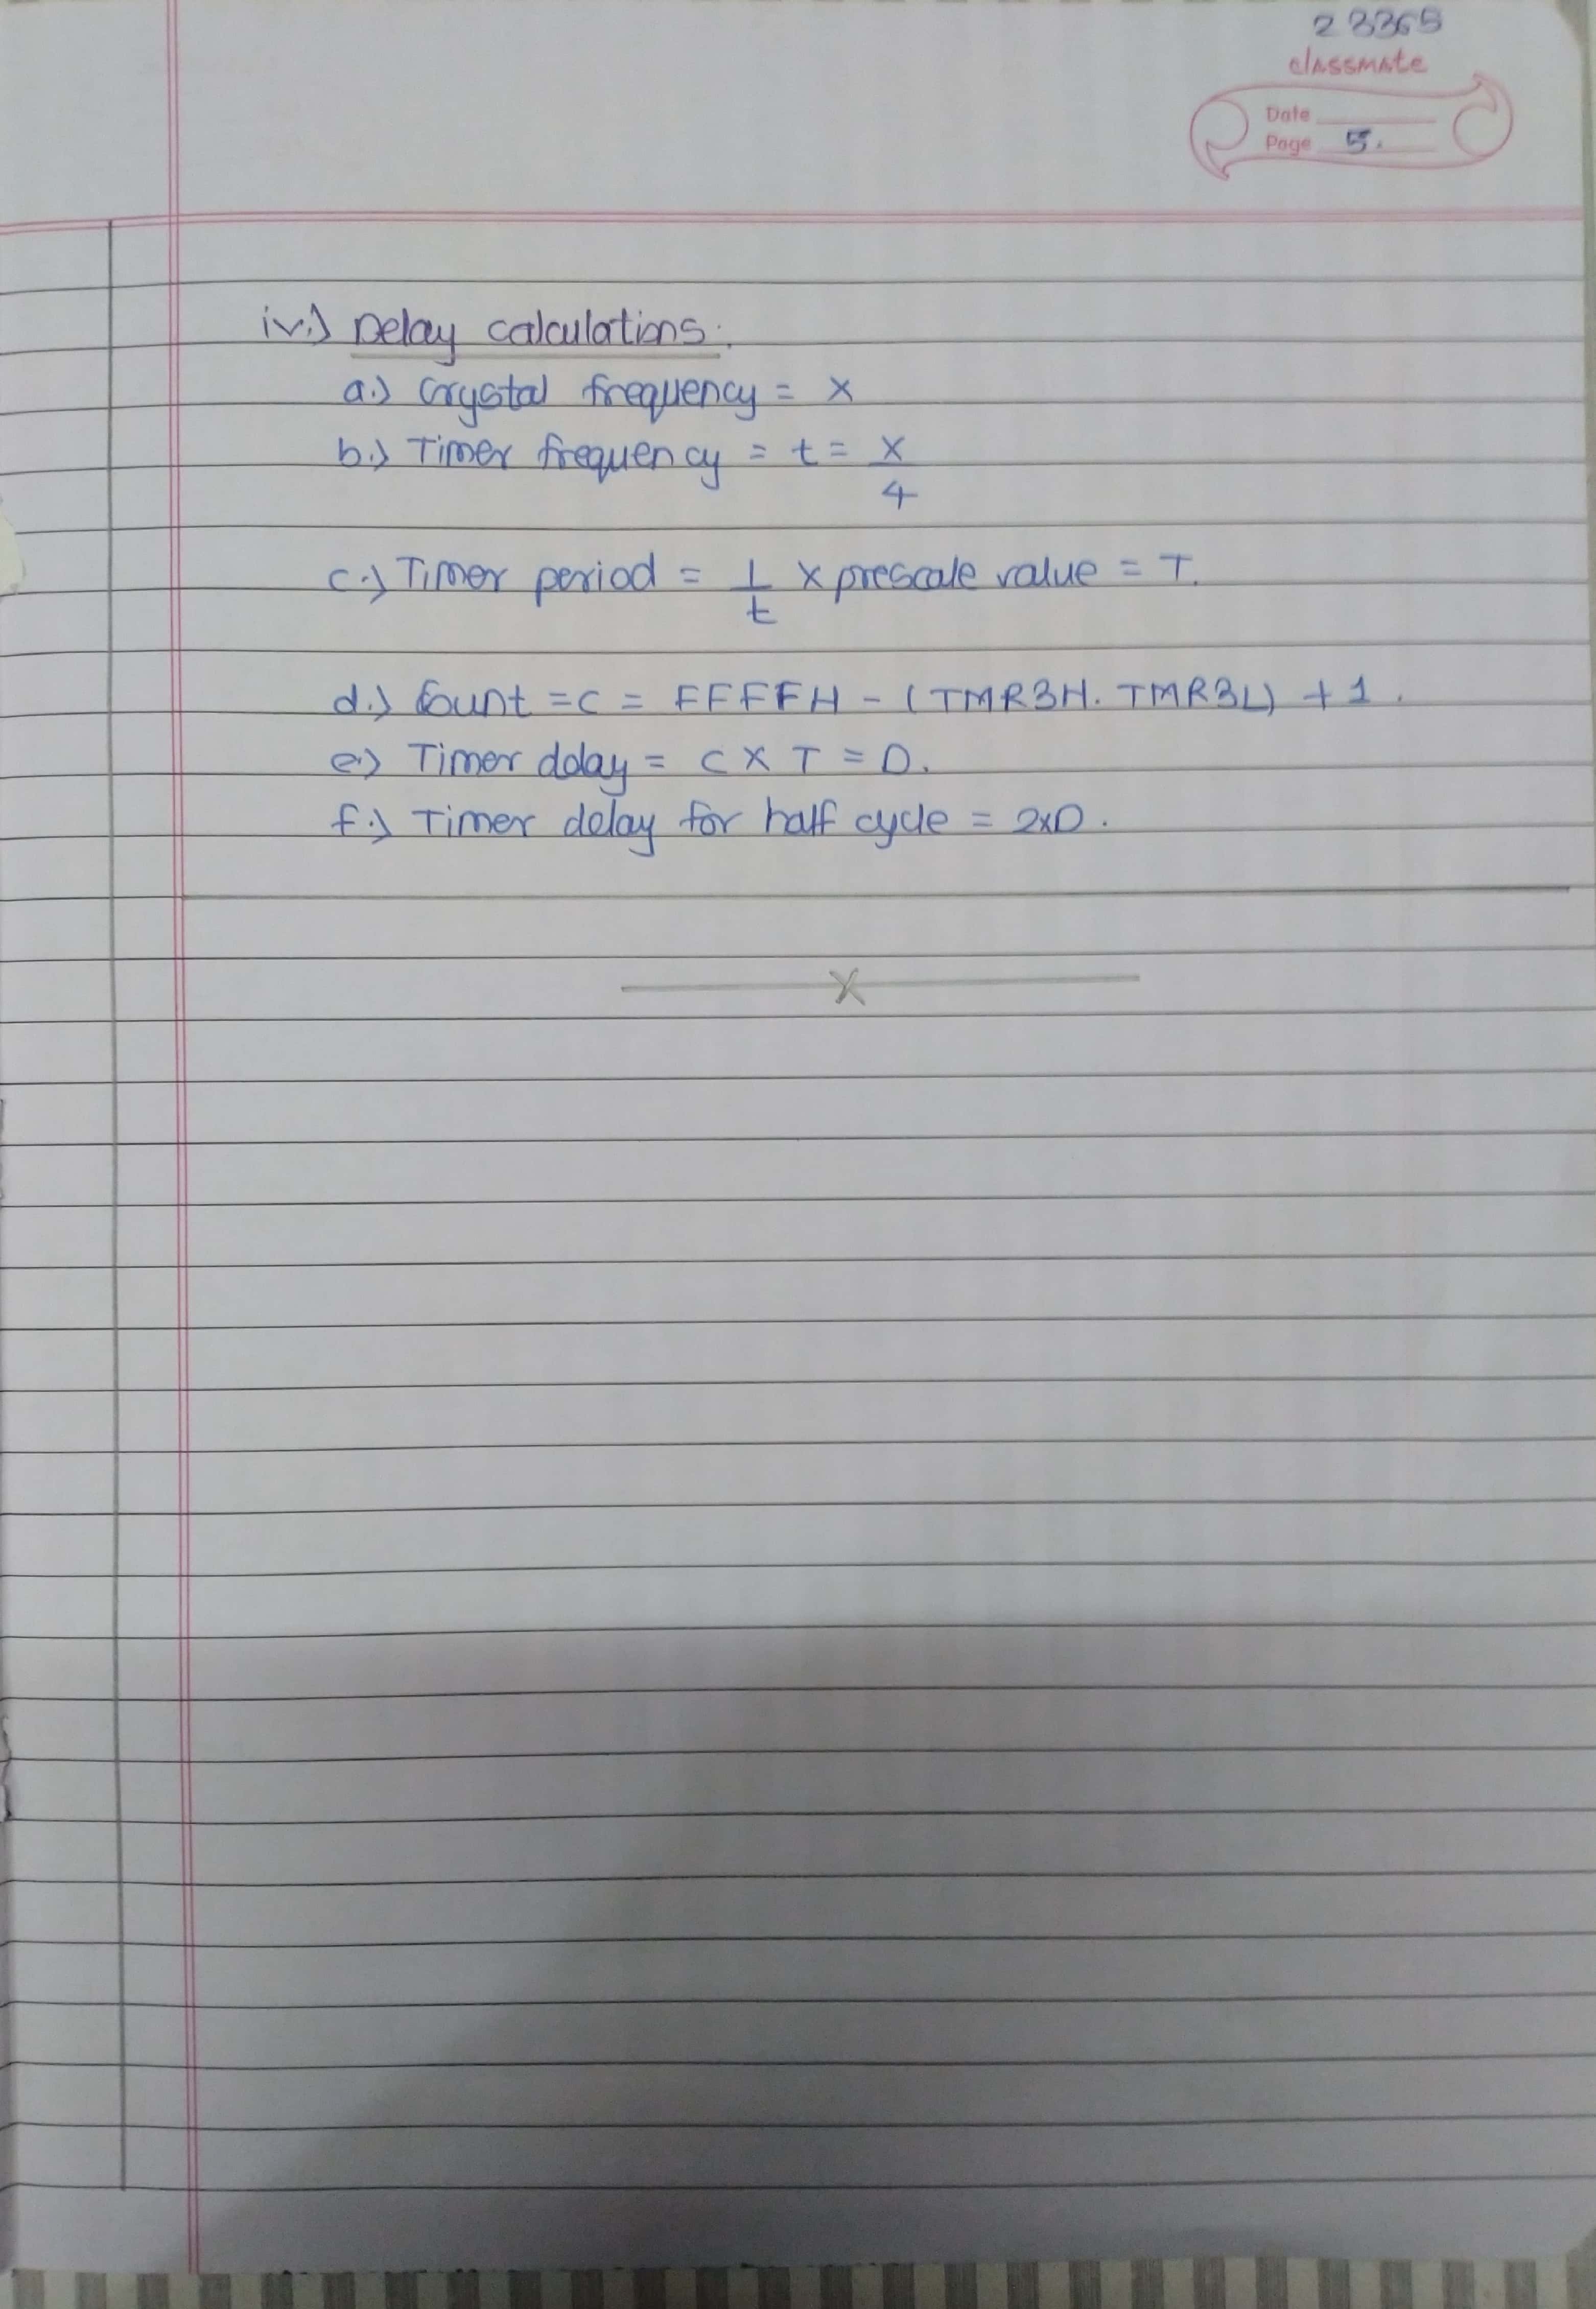 23365
classmate
Date
Page 5.
iv.) Delay calculations.
a.) Crystal frequency = x
b.) Timer frequency = t = x/4
c.) Timer period = 1/t × prescale value = T.
d.) Count = C = FFFFH - (TMR3H. TMR3L) + 1.
e.) Timer delay = C × T = D.
f.) Timer delay for half cycle = 2×D.
X